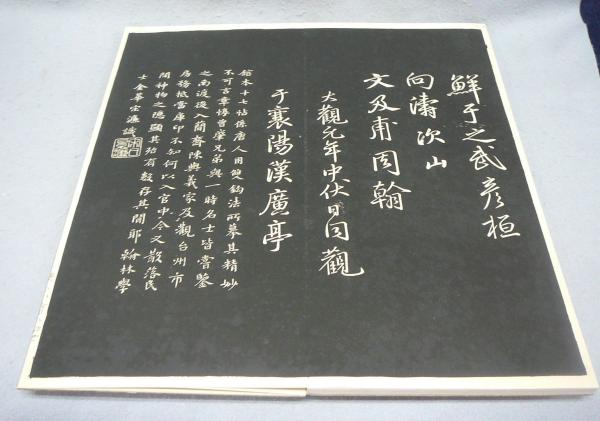 鮮于之武彦桓
向濤次山
文及甫周翰
大觀元年中伏日同觀
于襄陽漢廣亭
館本十七帖係唐人用雙鈎法所摹其精妙
不可言章惇曾肇兄弟與一時名士皆嘗鑒
之南渡後入簡齋陳與義家及觀台州市
房務抵當庫印不知何以入官中今又散落民
間神物之隱顯其殆有數存其間耶 翰林學
士金華宋濂識